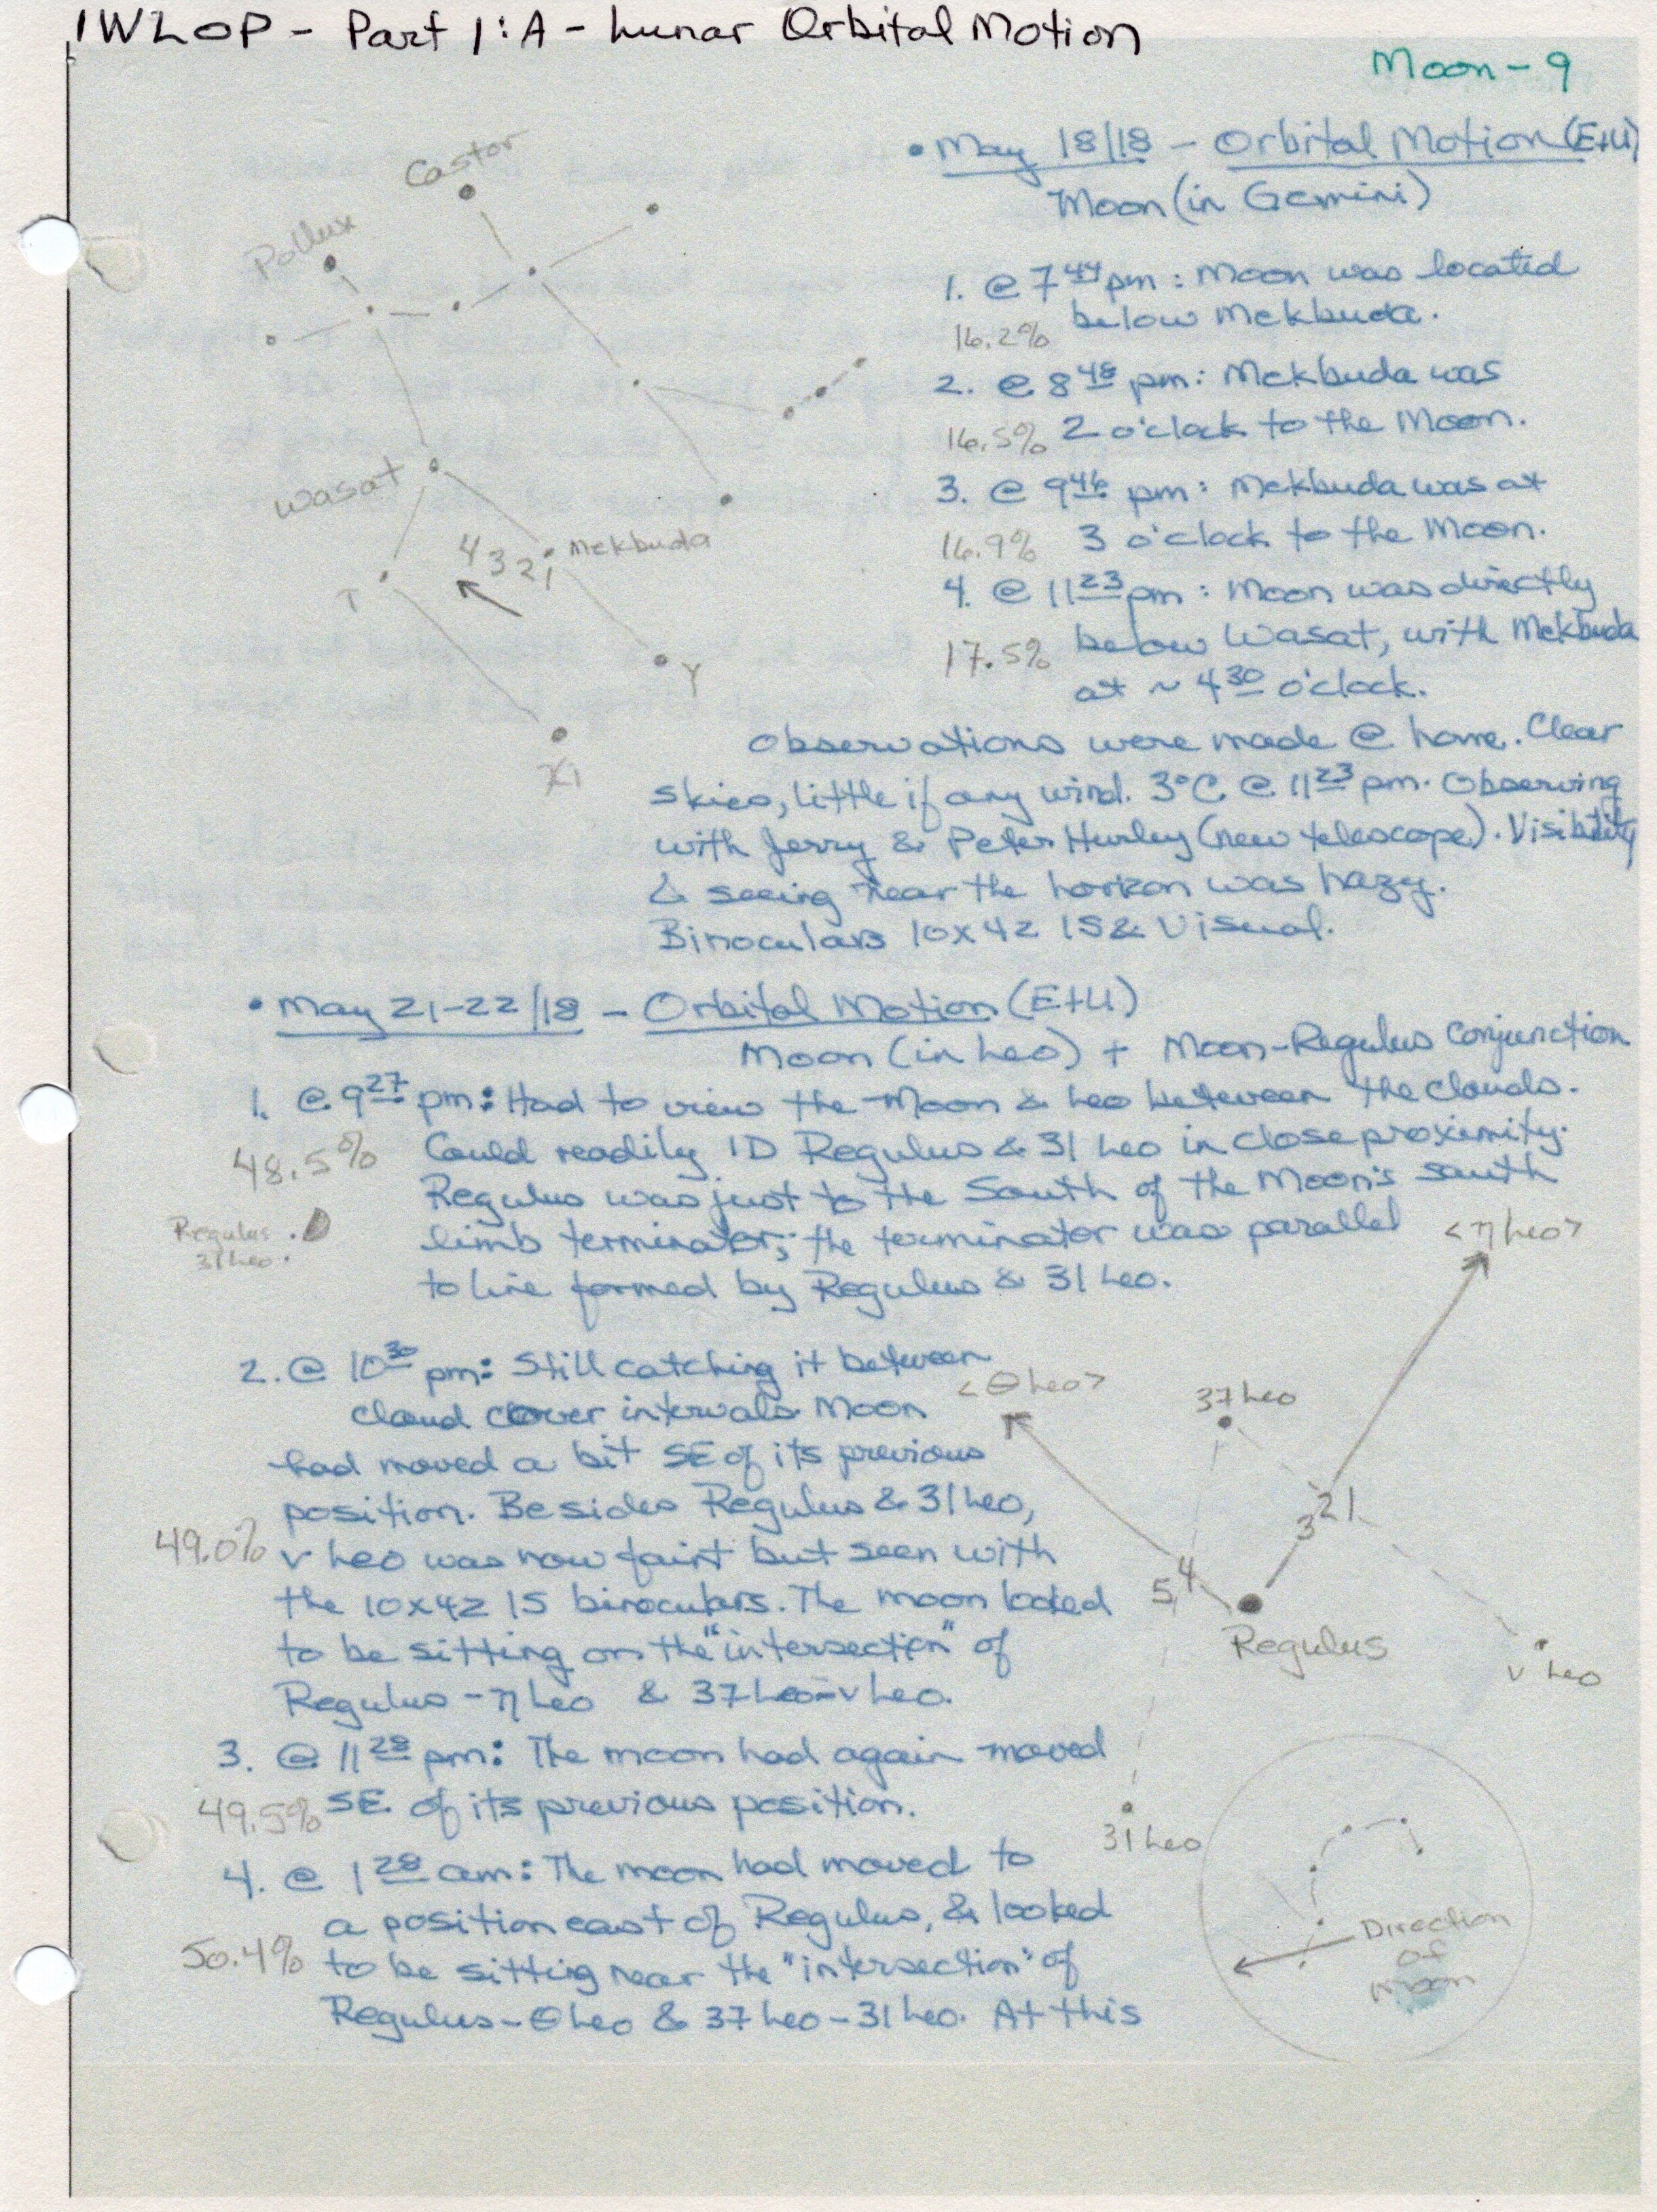 IWLOP - Part 1: A - Lunar Orbital Motion
Moon - 9
• May 18/18 - Orbital Motion (E+U)
Moon (in Gemini)
Castor
Pollux
Wasat
Mekbuda
4 3 2 1
T
γ
XI
1. @ 7 44 pm: Moon was located
16.2% below Mekbuda.
2. @ 8 48 pm: Mekbuda was
16.5% 2 o'clock to the Moon.
3. @ 9 46 pm: Mekbuda was at
16.9% 3 o'clock to the Moon.
4. @ 11 23 pm: Moon was directly
17.5% below Wasat, with Mekbuda
at ~ 4 30 o'clock.
Observations were made @ home. Clear
skies, little if any wind. 3°C @ 11 23 pm. Observing
with Jerry & Peter Hurley (new telescope). Visibility
& seeing near the horizon was hazy.
Binoculars 10x42 IS & Visual.
• May 21-22/18 - Orbital Motion (E+U)
Moon (in Leo) + Moon-Regulus Conjunction
1. @ 9 27 pm: Had to view the Moon & Leo between the clouds.
48.5% Could readily ID Regulus & 31 Leo in close proximity.
Regulus was just to the South of the Moon's south
limb terminator; the terminator was parallel
to line formed by Regulus & 31 Leo.
Regulus
31 Leo
2. @ 10 30 pm: Still catching it between
cloud cover intervals. Moon
had moved a bit SE of its previous
position. Besides Regulus & 31 Leo,
49.0% ν Leo was now faint but seen with
the 10x42 IS binoculars. The moon looked
to be sitting on the "intersection" of
Regulus - η Leo & 37 Leo - ν Leo.
3. @ 11 28 pm: The moon had again moved
49.5% SE of its previous position.
4. @ 1 28 am: The moon had moved to
a position east of Regulus, & looked
50.4% to be sitting near the "intersection" of
Regulus - θ Leo & 37 Leo - 31 Leo. At this
<η Leo>
<θ Leo>
37 Leo
3 2 1
5 4
Regulus
ν Leo
31 Leo
Direction
of
Moon